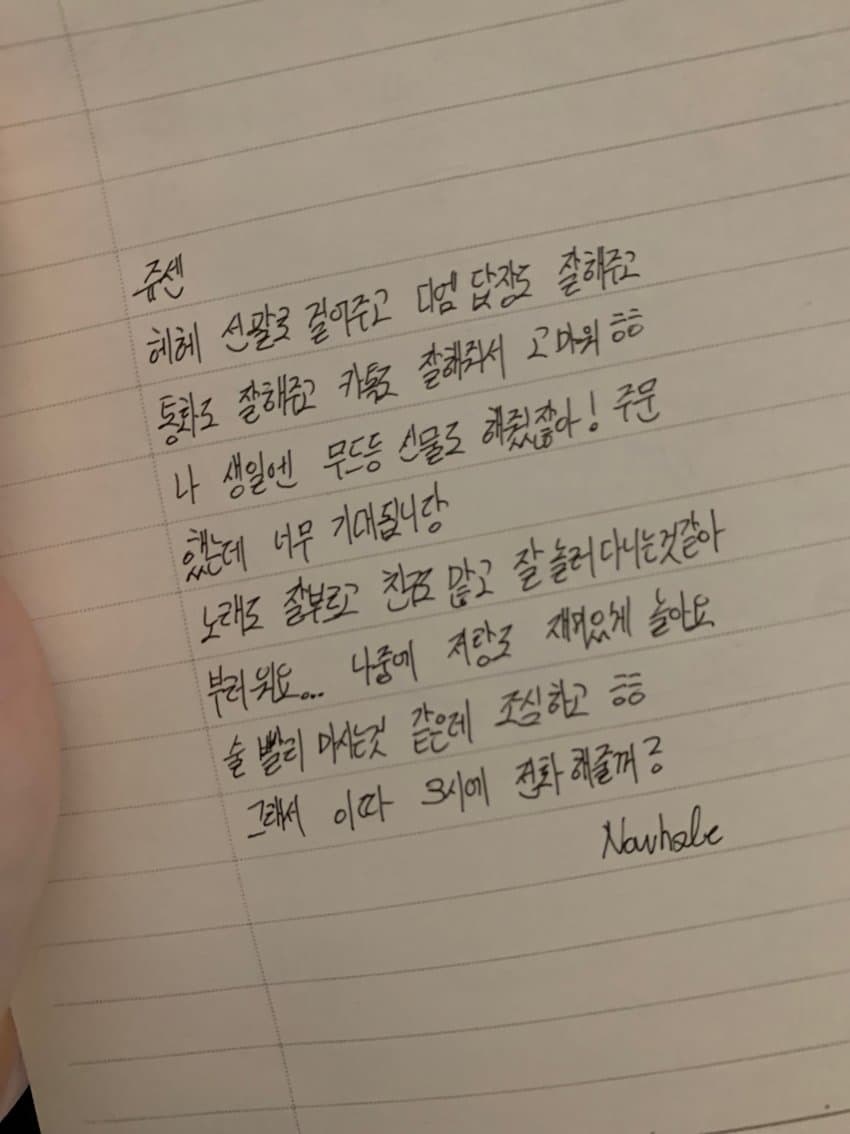 쥬센
헤헤 선팔로 걸어주고 디엠 답장도 잘해주고
통화도 잘해주고 카톡도 잘해줘서 고마워 ㅎㅎ
나 생일엔 무드등 선물도 해줬잖아! 주문
했는데 너무 기대됩니당
노래도 잘부르고 친구도 많고 잘 놀러다니는것같아
부러워요... 나중에 저랑도 재미있게 놀아요
술 빨리 마시는것 같은데 조심하고 ㅎㅎ
그래서 이따 3시에 전화해줄꺼